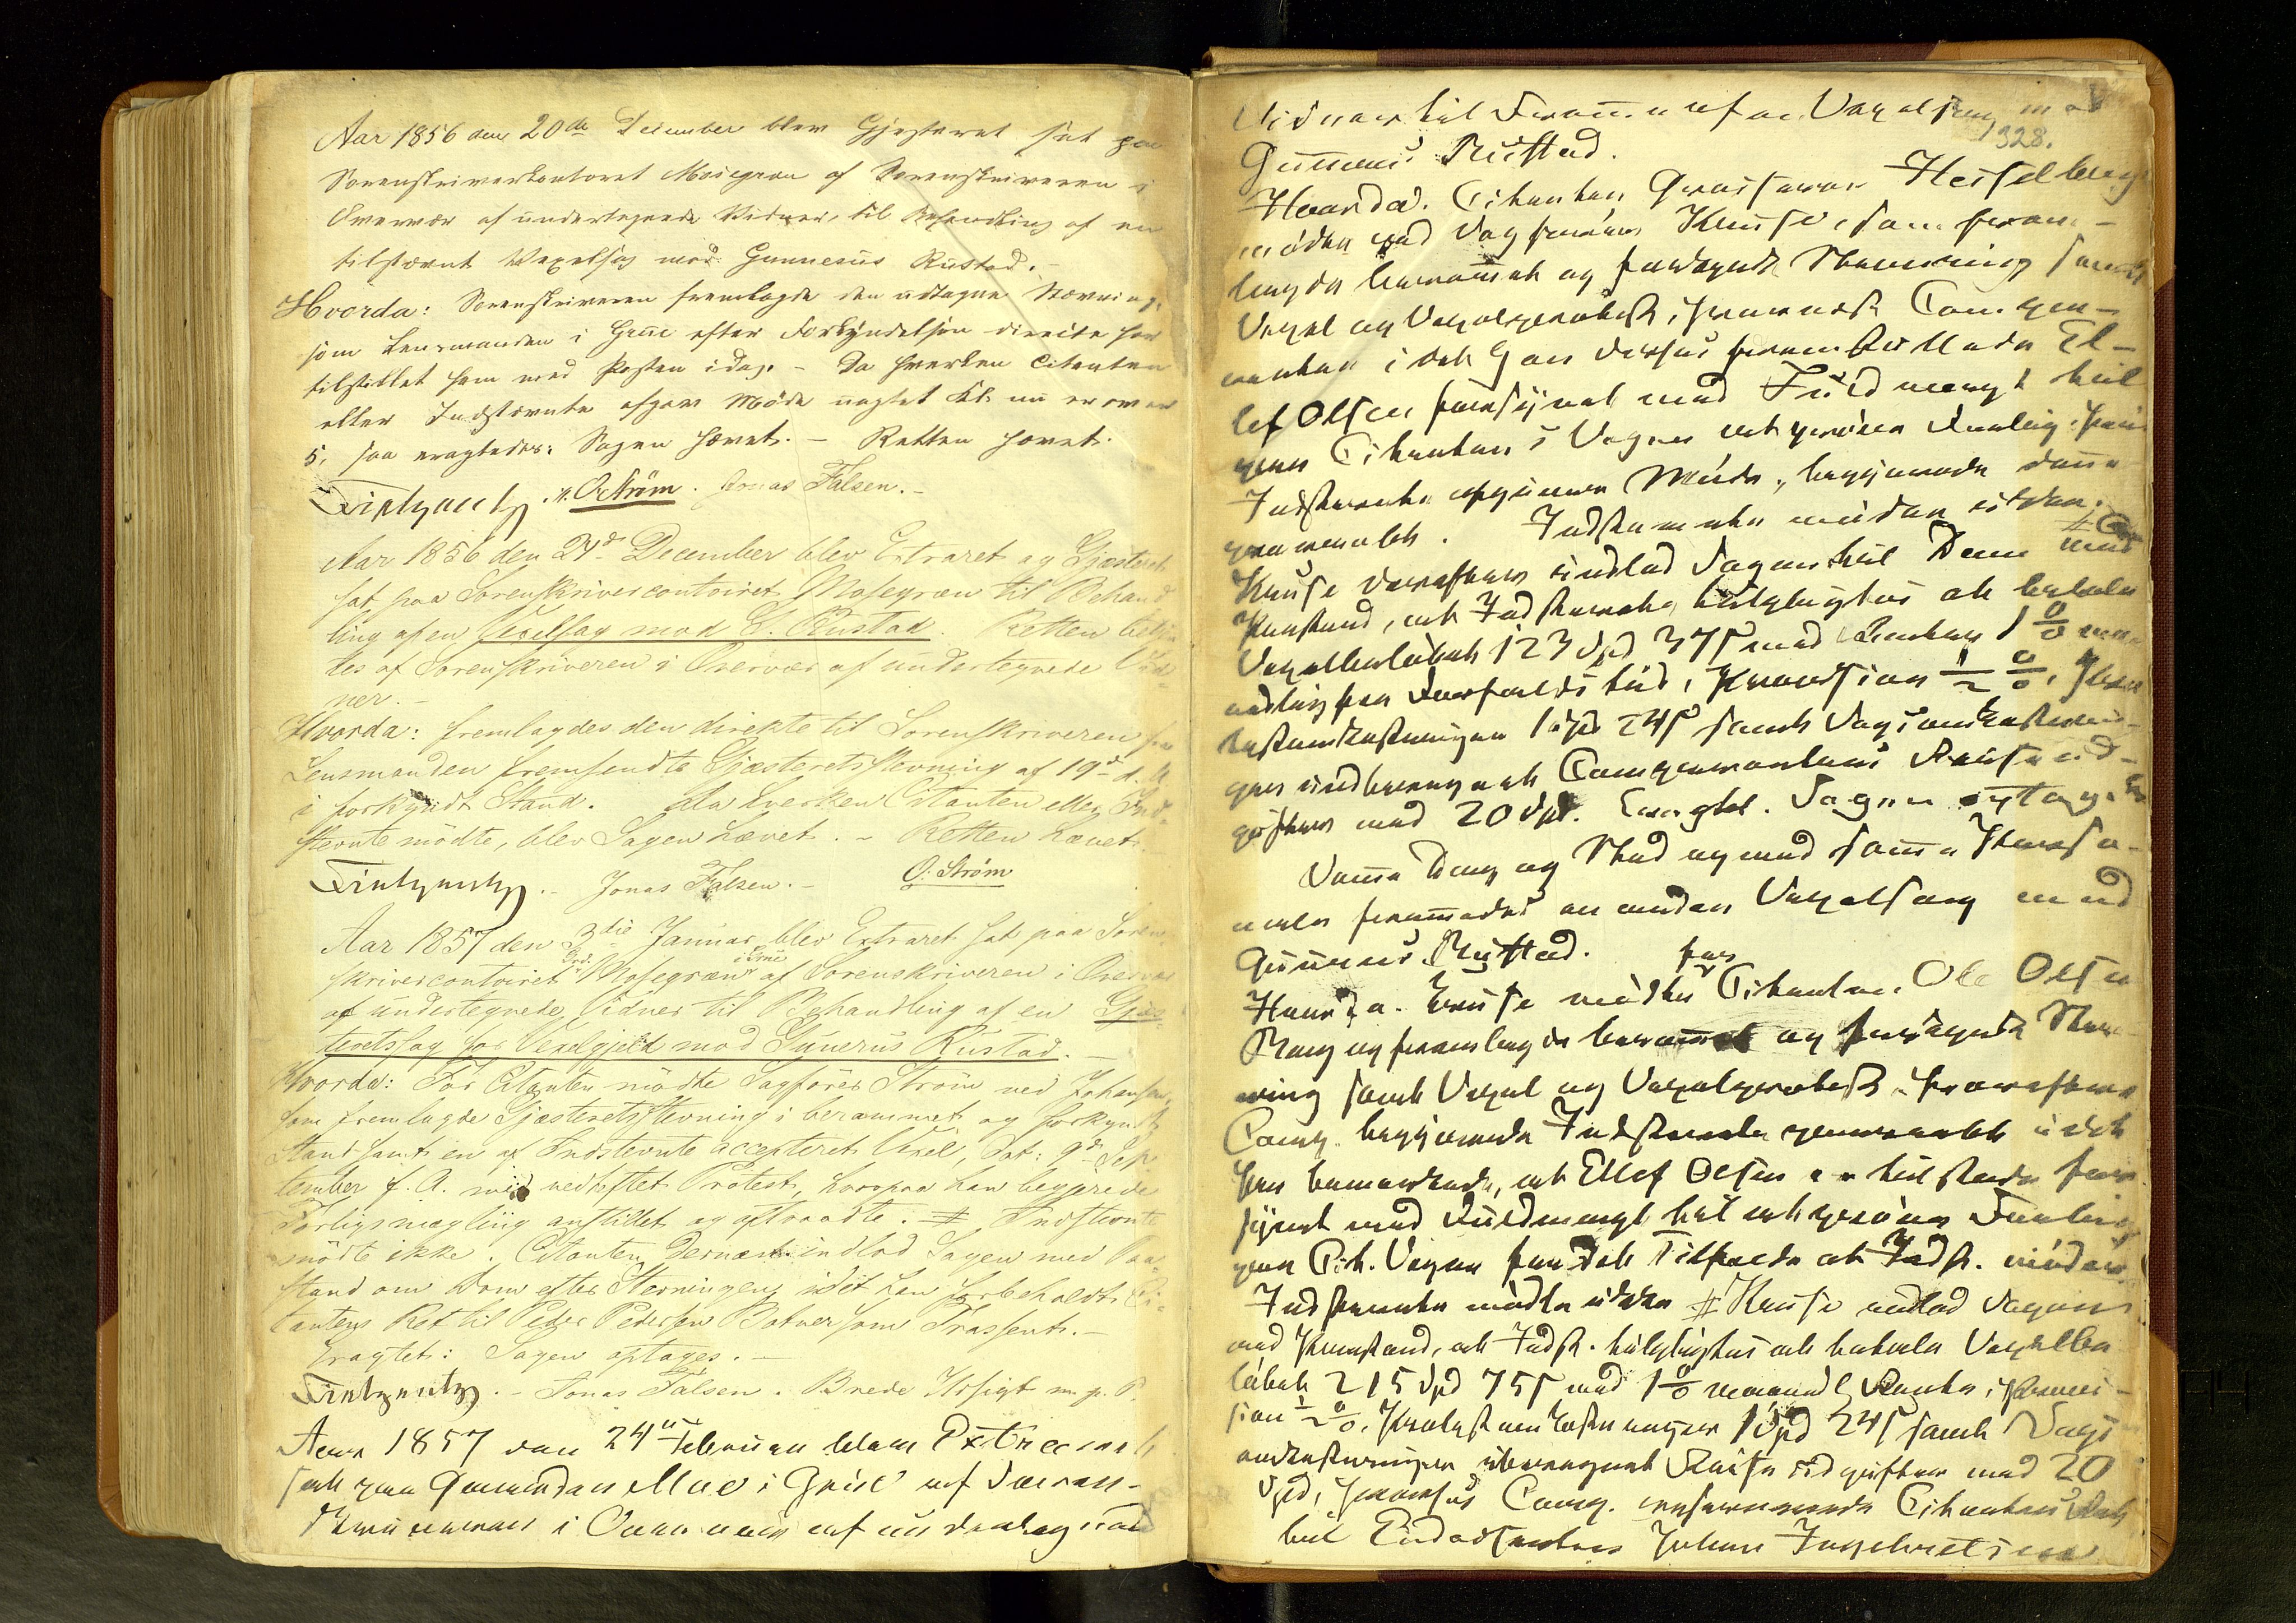 Aar 1856 den 20de December blev Gjesteret sat paa
Sorenskriverkontoret Mosegran af Sorenskriveren i
Overvær af undertegnede Vidner, til Behandling af en
tilstevnt Vexelsag mod Gunnerus Rustad.-
Hvorda: Sorenskriveren fremlagde den udtagne Stevning,
som Lensmanden i Grue efter Forkyndelsen directe har
tilstillet ham med Posten idag. - Da hverken Citanten
eller Indstevnte afgav Møde uagtet Kl: nu er over
5, saa eragtedes: Sagen hævet. - Retten hævet.
O Strøm. Jonas Falsen.-
Aar 1856 den 24de December blev Extraret og Gjesteret
sat paa Sorenskrivercontoiret Mosegran til Behand
ling af en Vexelsag mod G. Rustad. Retten betjen
tes af Sorenskriveren i Overvær af undertegnede Vid
ner.-
Hvorda: fremlagdes den direkte til Sorenskriveren fra
Lensmanden fremsendte Gjesteretsstevning af 19de d. M.
i forkyndt Stand. Da hverken Citanten eller Ind-
stevnte mødte, blev Sagen hævet. - Retten hævet.
Jonas Falsen.- O. Strøm
Aar 1857 den 3die Januar blev Extraret sat paa Soren
skrivercontoiret Grd. Mosegran i Grue af Sorenskriveren i Overvær
af undertegnede Vidner til Behandling af en Gjes-
teretssag for Vexelgjeld mod Gunerus Rustad.-
Hvorda: For Citanten mødte Sagfører Strøm ved Johansen,
som fremlagde Gjesteretsstevning i berammet og forkyndt
Stand samt en af Indstevnte accepteret Vexel, Dat: 9de Sep-
tember f. A. med vedheftet Protest, hvorpaa han begjerede
Forligsmægling anstillet og aftraadte. # Indstevnte
mødte ikke. Citanten dernæst indlod Sagen med Paa-
stand om Dom efter Stevningen, idet han forbeholdt Ci-
tanten Ret til Peder Pedersen Botner som Trassent.-
Eragtet: Sagen optages.-
Jonas Falsen. Brede m. p. P.
Aar 1857 den 24de Februar blev Extraret
sat paa Gaarden Moe i Grue af Soren-
skriveren i Overvær af undertegnede
328.
Vidner til Fremme af en Vexelsag mod
Gunnerus Rustad.
Hvorda. Citanten Grosserer Hesselberg
møder ved Sagfører Kruse, som frem-
lagde berammet og forkyndt Stevning samt
Vexel og Vexelprotest, hvornæst Comp-
renten i det Han fremstillede El-
lef Olsen forsynet med Fuldmagt til
paa Citantens Vegne at prøve Forlig, hvis
Indstevnte afgiver Møde, begjerede denne
paaraabt. Indstevnte møder ikke. #
Kruse derefter indlod Sagen til Dom med
Paastand, at Indstevnte tilpligtes at betale
Vexelbeløbet 123 Spd 37 s med Renter 1 % maa
nedlig fra Forfaldstid, Provision ½ %, Pro
testomkostninger 1 Spd 24 s samt Sagsomkostnin-
ger indberegnet Comparentens Reiseud-
gifter med 20 Spd. Eragtet. Sagen optages
Samme Dag og Sted og med samme Perso-
nale fremmedes en anden Vexelsag mod
Gunnerus Rustad.
Hvorda. Kruse mødte for Citanten Ole Olsen
Moeg og fremlagde berammet og forkyndt Stev-
ning samt Vexel og Vexelprotest, hvorefter
Comp. begjerede Indstevnte paaraabt idet
han bemærkede, at Ellef Olsen er tilstede for
synet med Fuldmagt til at prøve Forlig
paa Cit. Vegne for det Tilfælde at Indst. møder.
Indstevnte mødte ikke # Kruse indlod Sagen
med Paastand, at Indst. tilpligtes at betale Vexelbe
løbet 215 Spd 75 s med 1 % maanedl Rente, Provi-
sion ½ %, Protestomkostninger 1 Spd 24 s samt Sags
omkostninger iberegnet Reiseudgifter med 20
Spd, Comp. reserverede Citanten Ret
til Endossenten Johan Ingebretsen